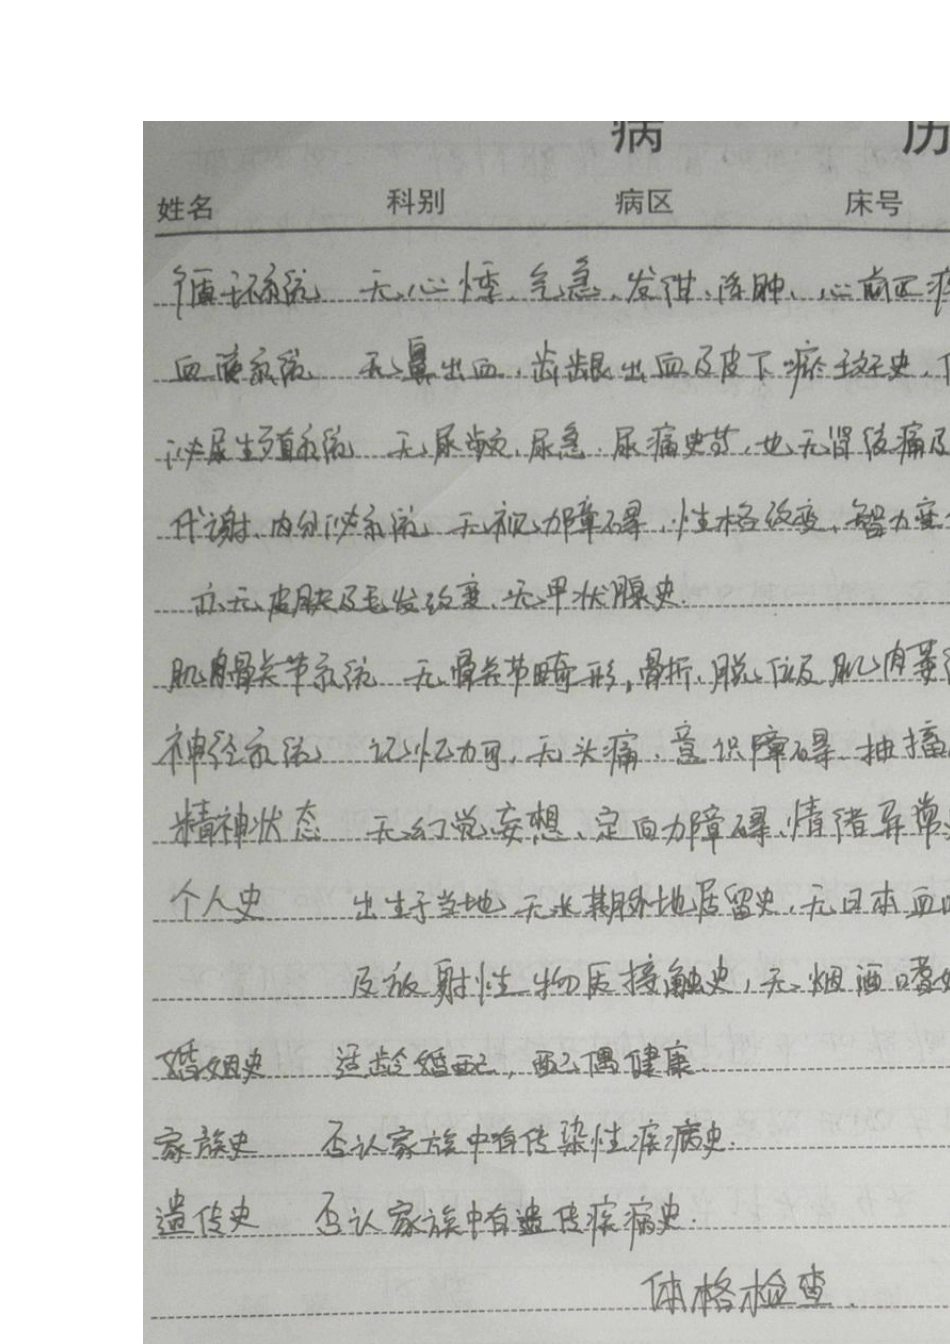 病 历
姓名 科别 病区 床号
循环系统 无心悸、气急、发绀、浮肿、心前区疼
血液系统 无鼻出血、齿龈出血及皮下瘀斑史、
泌尿生殖系统 无尿频、尿急、尿痛史,也无肾绞痛及
代谢、内分泌系统 无视力障碍、性格改变、智力变
亦无皮肤及毛发改变、无甲状腺史.
肌肉骨关节系统 无骨关节畸形,骨折、脱位及肌肉萎
神经系统 记忆力可,无头痛、意识障碍、抽搐
精神状态 无幻觉、妄想、定向力障碍、情绪异常
个人史 出生于当地、无长期外地居留史,无日本血吸
及放射性生物质接触史,无烟酒嗜好
婚姻史 适龄婚配,配偶健康.
家族史 否认家族中有传染性疾病史.
遗传史 否认家族中有遗传疾病史.
体格检查.